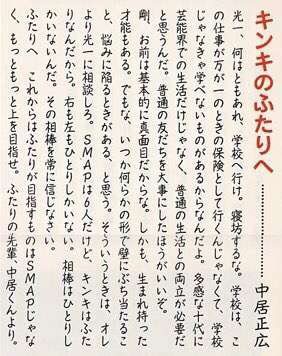 キンキのふたりへ…………中居正広
光一、何はともあれ、学校へ行け。寝坊するな。学校は、こ
の仕事が万が一のときの保険として行くんじゃなくて、学校
じゃなきゃ学べないものがあるからなんだよ。多感な十代に
芸能界での生活だけじゃなく、普通の生活との両立が必要だ
と思うんだ。普通の友だちを大事にしたほうがいいぞ。
剛、お前は基本的に真面目だからな。しかも、生まれ持った
才能もある。でもな、いつか何らかの形で壁にぶち当たるこ
と、悩みに陥るときがある、と思う。そういうときは、オレ
より光一に相談しろ。SMAPは6人だけど、キンキはふた
りなんだから。右も左もひとりしかいない。相棒はひとりし
かいないんだ。その相棒を常に信じなさい。
ふたりへ これからはふたりが目指すものはSMAPじゃな
く、もっともっと上を目指せ。ふたりの先輩、中居くんより。